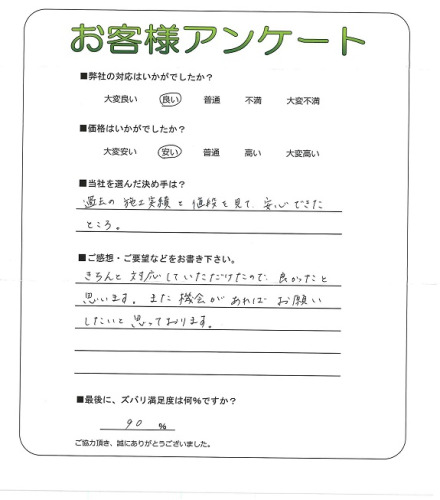 お客様アンケート
■弊社の対応はいかがでしたか？
大変良い 良い 普通 不満 大変不満
■価格はいかがでしたか？
大変安い 安い 普通 高い 大変高い
■当社を選んだ決め手は？
過去の施工実績と値段を見て、安心できた
ところ。
■ご感想・ご要望などをお書き下さい。
きちんと対応していただけたので、良かったと
思います。また機会があればお願い
したいと思っております。
■最後に、ズバリ満足度は何％ですか？
90 ％
ご協力頂き、誠にありがとうございました。